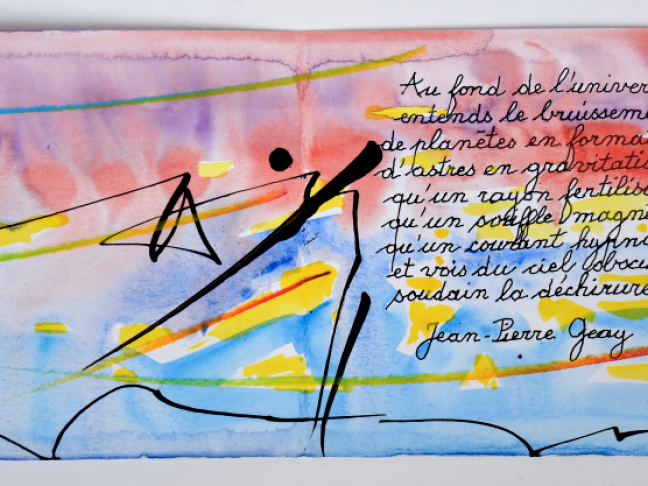 Au fond de l'univer
entends le bruissem
de planètes en forma
d'astres en gravitati
qu'un rayon fertilis
qu'un souffle magné
qu'un courant hypno
et vois du ciel obscu
soudain la déchirure
Jean-Pierre Geay